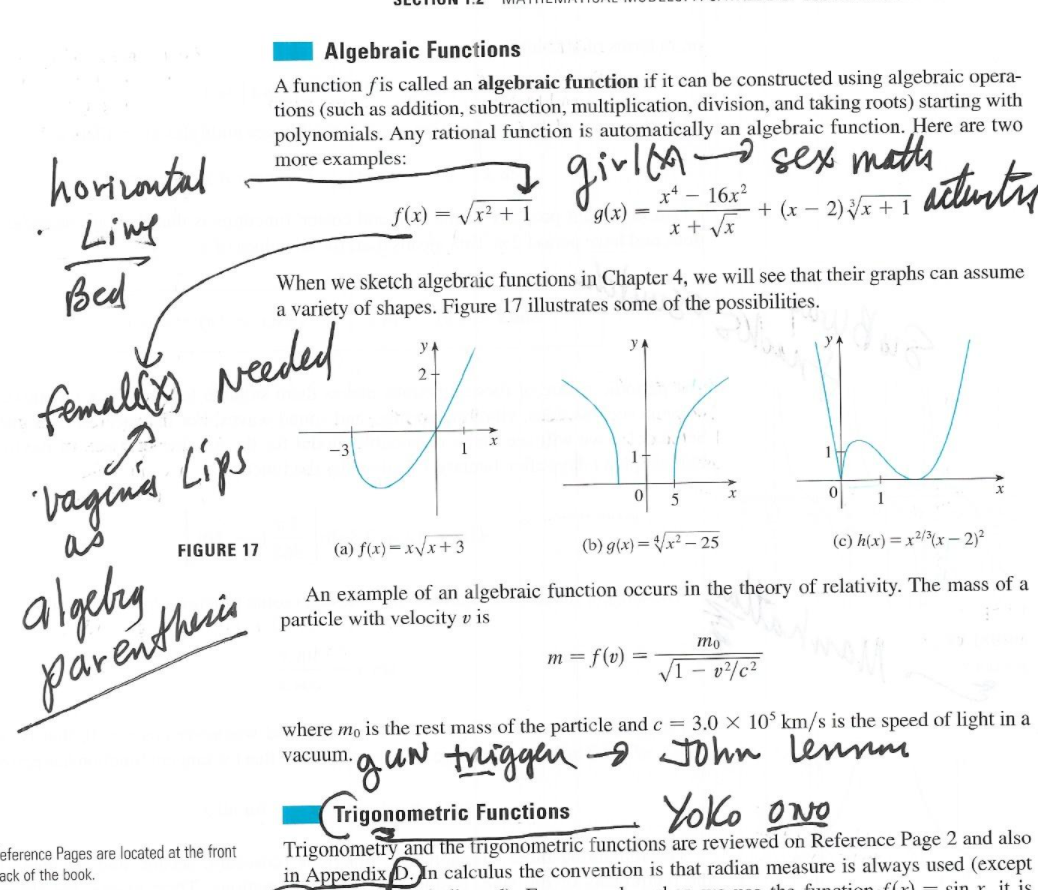 SECTION 1.2
Algebraic Functions
A function f is called an algebraic function if it can be constructed using algebraic opera-
tions (such as addition, subtraction, multiplication, division, and taking roots) starting with
polynomials. Any rational function is automatically an algebraic function. Here are two
more examples:
girl(x) → sex maths
activity
horizontal
Line
Bed
f(x) = √(x² + 1)
g(x) = (x⁴ − 16x²)/(x + √x) + (x − 2)∛(x + 1)
When we sketch algebraic functions in Chapter 4, we will see that their graphs can assume
a variety of shapes. Figure 17 illustrates some of the possibilities.
female(x) Needed
vagina Lips
as
algebra
parenthesis
y
2
−3
1
x
y
1
0
5
x
y
1
0
1
x
FIGURE 17
(a) f(x) = x√(x + 3)
(b) g(x) = ∜(x² − 25)
(c) h(x) = x^(2/3)(x − 2)²
An example of an algebraic function occurs in the theory of relativity. The mass of a
particle with velocity v is
m = f(v) = m₀/√(1 − v²/c²)
where m₀ is the rest mass of the particle and c = 3.0 × 10⁵ km/s is the speed of light in a
vacuum.
gun trigger → John Lennon
Yoko Ono
Trigonometric Functions
Trigonometry and the trigonometric functions are reviewed on Reference Page 2 and also
in Appendix D. In calculus the convention is that radian measure is always used (except
the function f(x) = sin x, it is
eference Pages are located at the front
ack of the book.